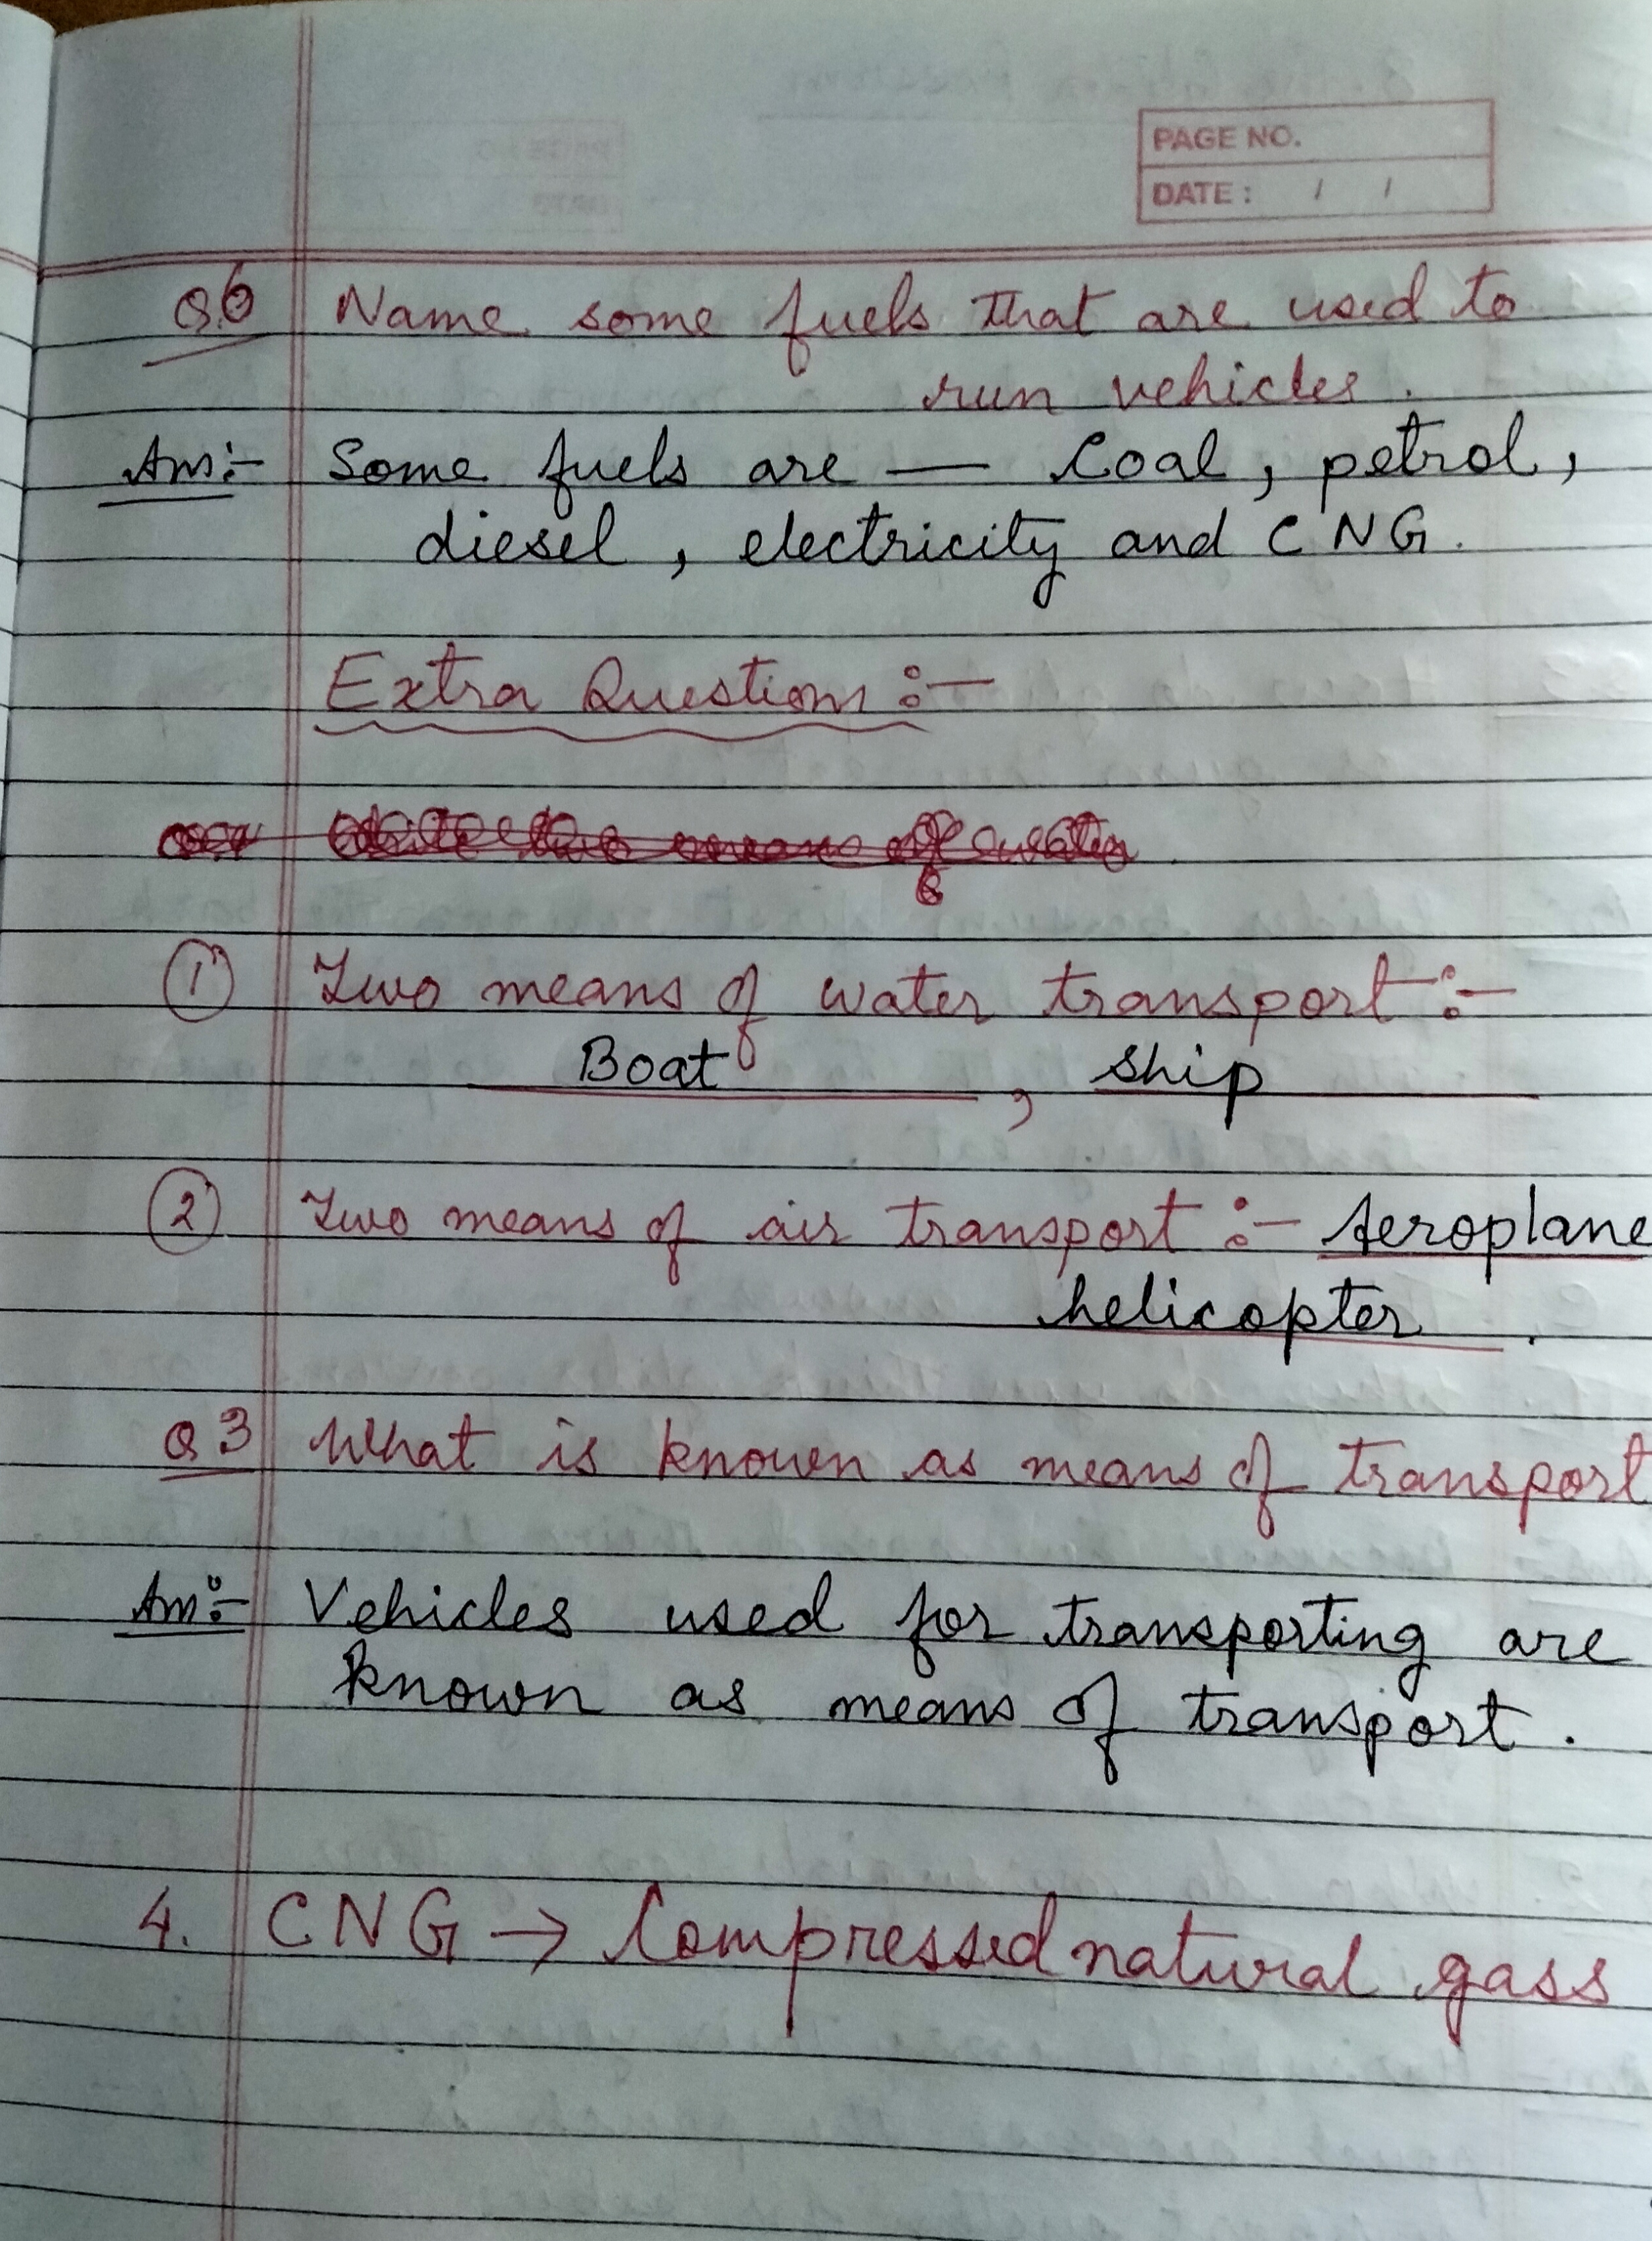 PAGE NO.
DATE : / /
Q.6 Name some fuels that are used to
run vehicles.
Ans:- Some fuels are — Coal, petrol,
diesel, electricity and CNG.
Extra Questions :-
① Two means of water transport :-
Boat , Ship
② Two means of air transport :- Aeroplane
helicopter .
Q3 What is known as means of transport
Ans:- Vehicles used for transporting are
known as means of transport .
4. CNG → Compressed natural gass